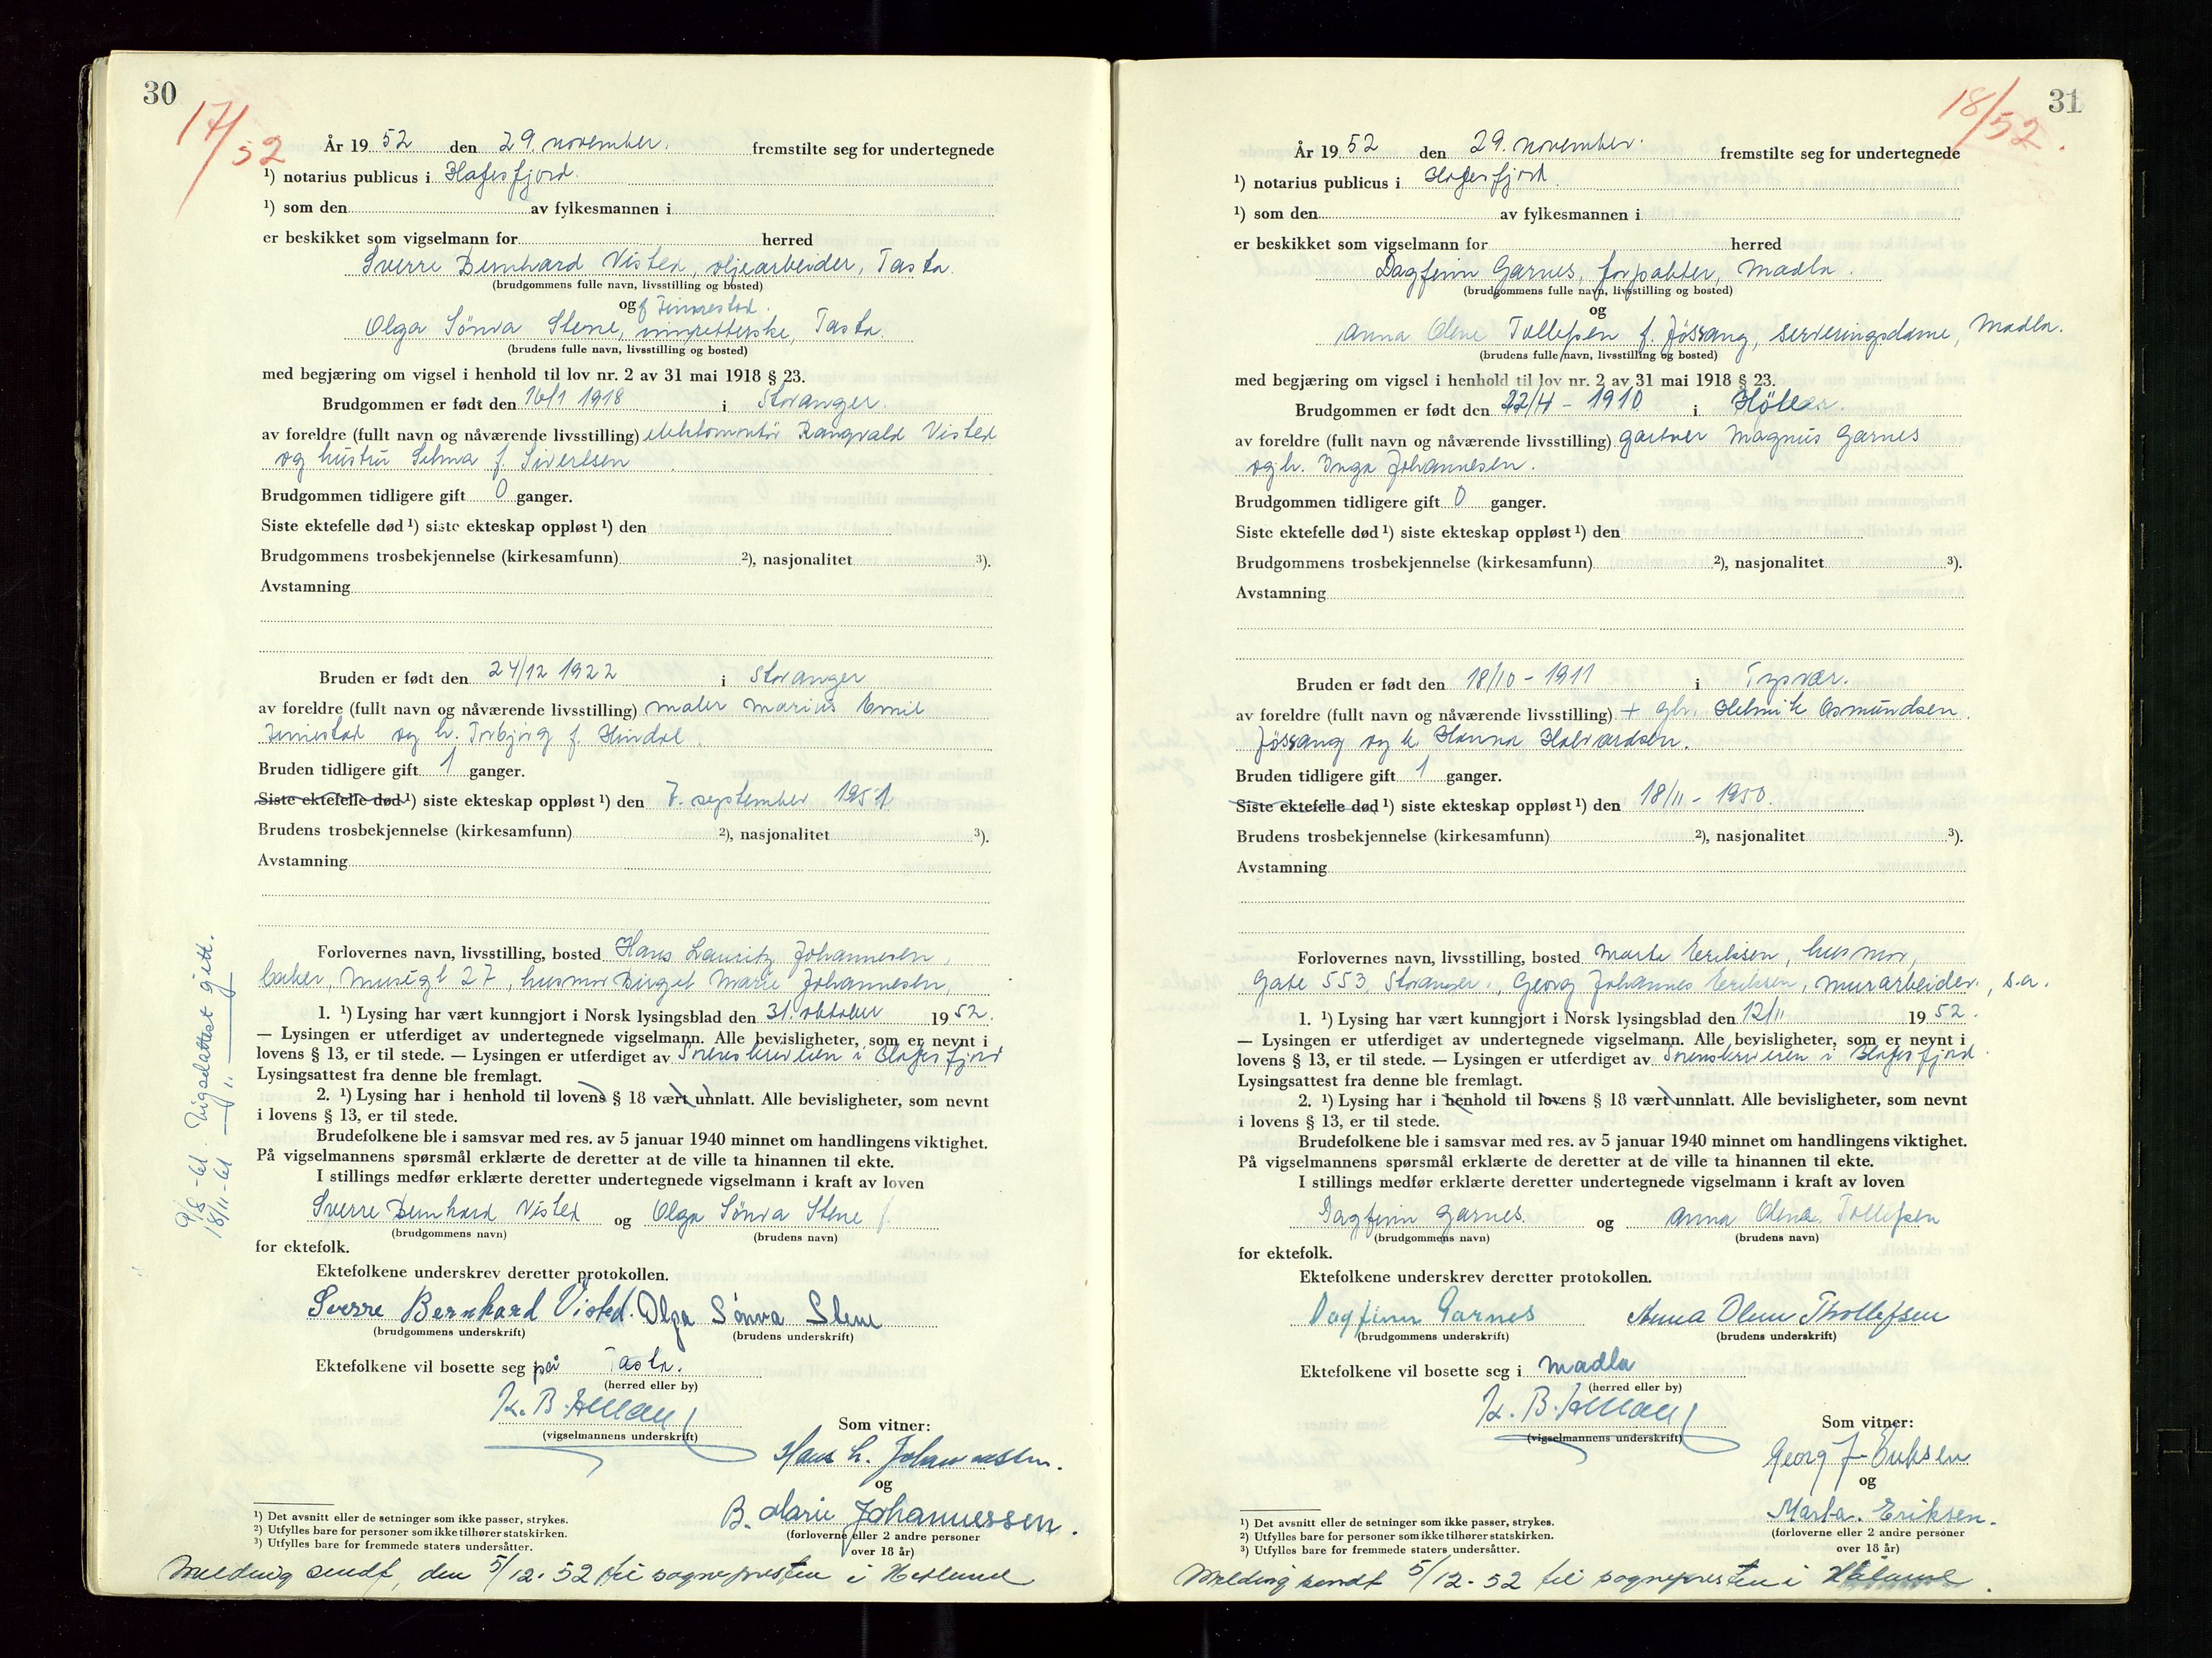 30
17/52
År 19 52 den 29. november. fremstilte seg for undertegnede
¹) notarius publicus i Hafrsfjord.
¹) som den av fylkesmannen i
er beskikket som vigselmann for herred
Sverre Bernhard Visted, oljearbeider, Tasta.
(brudgommens fulle navn, livsstilling og bosted)
og f. Finnestad.
Olga Sønva Stene, Tasta.
(brudens fulle navn, livsstilling og bosted)
med begjæring om vigsel i henhold til lov nr. 2 av 31 mai 1918 § 23.
Brudgommen er født den 16/1 1918 i Stavanger.
av foreldre (fullt navn og nåværende livsstilling) elektromontør Rangvald Visted
og hustru Selma f. Sivertsen
Brudgommen tidligere gift 0 ganger.
Siste ektefelle død ¹) siste ekteskap oppløst ¹) den
Brudgommens trosbekjennelse (kirkesamfunn) ²), nasjonalitet ³).
Avstamning
Bruden er født den 24/12 1922 i Stavanger
av foreldre (fullt navn og nåværende livsstilling) maler Marius Emil
Finnestad og h. Torbjørg f. Hindal.
Bruden tidligere gift 1 ganger.
Siste ektefelle død ¹) siste ekteskap oppløst ¹) den 7. september 1951
Brudens trosbekjennelse (kirkesamfunn) ²), nasjonalitet ³).
Avstamning
Forlovernes navn, livsstilling, bosted Hans Lauritz Johannesen,
baker, Musegt 27, husmor Birget Marie Johannesen,
1. ¹) Lysing har vært kunngjort i Norsk lysingsblad den 31. oktober 19 52.
— Lysingen er utferdiget av undertegnede vigselmann. Alle bevisligheter, som er nevnt i
lovens § 13, er til stede. — Lysingen er utferdiget av Sorenskriveren i Hafrsfjord
Lysingsattest fra denne ble fremlagt.
2. ¹) Lysing har i henhold til lovens § 18 vært unnlatt. Alle bevisligheter, som nevnt
i lovens § 13, er til stede.
Brudefolkene ble i samsvar med res. av 5 januar 1940 minnet om handlingens viktighet.
På vigselmannens spørsmål erklærte de deretter at de ville ta hinannen til ekte.
I stillings medfør erklærte deretter undertegnede vigselmann i kraft av loven
Sverre Bernhard Visted og Olga Sønva Stene
(brudgommens navn) (brudens navn)
for ektefolk.
Ektefolkene underskrev deretter protokollen.
Sverre Bernhard Visted. Olga Sønva Stene
(brudgommens underskrift) (brudens underskrift)
Ektefolkene vil bosette seg på Tasta.
(herred eller by)
K. B.
(vigselmannens underskrift)
Som vitner:
Hans L. Johannessen.
og
B. Marie Johannessen.
(forloverne eller 2 andre personer
over 18 år)
¹) Det avsnitt eller de setninger som ikke passer, strykes.
²) Utfylles bare for personer som ikke tilhører statskirken.
³) Utfylles bare for fremmede staters undersåtter.
Melding sendt, den 5/12-52 til sognepresten i Hetland
9/8-61. Vigselattest gitt.
18/11-61 — " —
31
18/52.
År 19 52 den 29. november. fremstilte seg for undertegnede
¹) notarius publicus i Hafrsfjord.
¹) som den av fylkesmannen i
er beskikket som vigselmann for herred
Dagfinn Garnes, forpakter, Madla.
(brudgommens fulle navn, livsstilling og bosted)
og
Anna Olene Tollefsen f. Jössang, serveringsdame, Madla.
(brudens fulle navn, livsstilling og bosted)
med begjæring om vigsel i henhold til lov nr. 2 av 31 mai 1918 § 23.
Brudgommen er født den 22/4 - 1910 i
av foreldre (fullt navn og nåværende livsstilling) gartner Magnus Garnes
og h. Inga Johannesen.
Brudgommen tidligere gift 0 ganger.
Siste ektefelle død ¹) siste ekteskap oppløst ¹) den
Brudgommens trosbekjennelse (kirkesamfunn) ²), nasjonalitet ³).
Avstamning
Bruden er født den 18/10 - 1911 i Tysvær.
av foreldre (fullt navn og nåværende livsstilling) + gbr. Helmik Osmundsen
Jössang og h. Hanna Halvardsen.
Bruden tidligere gift 1 ganger.
Siste ektefelle død ¹) siste ekteskap oppløst ¹) den 18/11 - 1950.
Brudens trosbekjennelse (kirkesamfunn) ²), nasjonalitet ³).
Avstamning
Forlovernes navn, livsstilling, bosted Marta Eriksen, husmor,
Gate 553, Stavanger., Georg Johannes Eriksen, murarbeider., s.a.
1. ¹) Lysing har vært kunngjort i Norsk lysingsblad den 12/11 19 52.
— Lysingen er utferdiget av undertegnede vigselmann. Alle bevisligheter, som er nevnt i
lovens § 13, er til stede. — Lysingen er utferdiget av Sorenskriveren i Hafrsfjord.
Lysingsattest fra denne ble fremlagt.
2. ¹) Lysing har i henhold til lovens § 18 vært unnlatt. Alle bevisligheter, som nevnt
i lovens § 13, er til stede.
Brudefolkene ble i samsvar med res. av 5 januar 1940 minnet om handlingens viktighet.
På vigselmannens spørsmål erklærte de deretter at de ville ta hinannen til ekte.
I stillings medfør erklærte deretter undertegnede vigselmann i kraft av loven
Dagfinn Garnes. og Anna Olena Tollefsen
(brudgommens navn) (brudens navn)
for ektefolk.
Ektefolkene underskrev deretter protokollen.
Dagfinn Garnes Anna Olene Thollefsen
(brudgommens underskrift) (brudens underskrift)
Ektefolkene vil bosette seg i Madla
(herred eller by)
K. B.
(vigselmannens underskrift)
Som vitner:
Georg J. Eriksen
og
Marta. Eriksen.
(forloverne eller 2 andre personer
over 18 år)
¹) Det avsnitt eller de setninger som ikke passer, strykes.
²) Utfylles bare for personer som ikke tilhører statskirken.
³) Utfylles bare for fremmede staters undersåtter.
Melding sendt 5/12-52 til sognepresten i Håland.